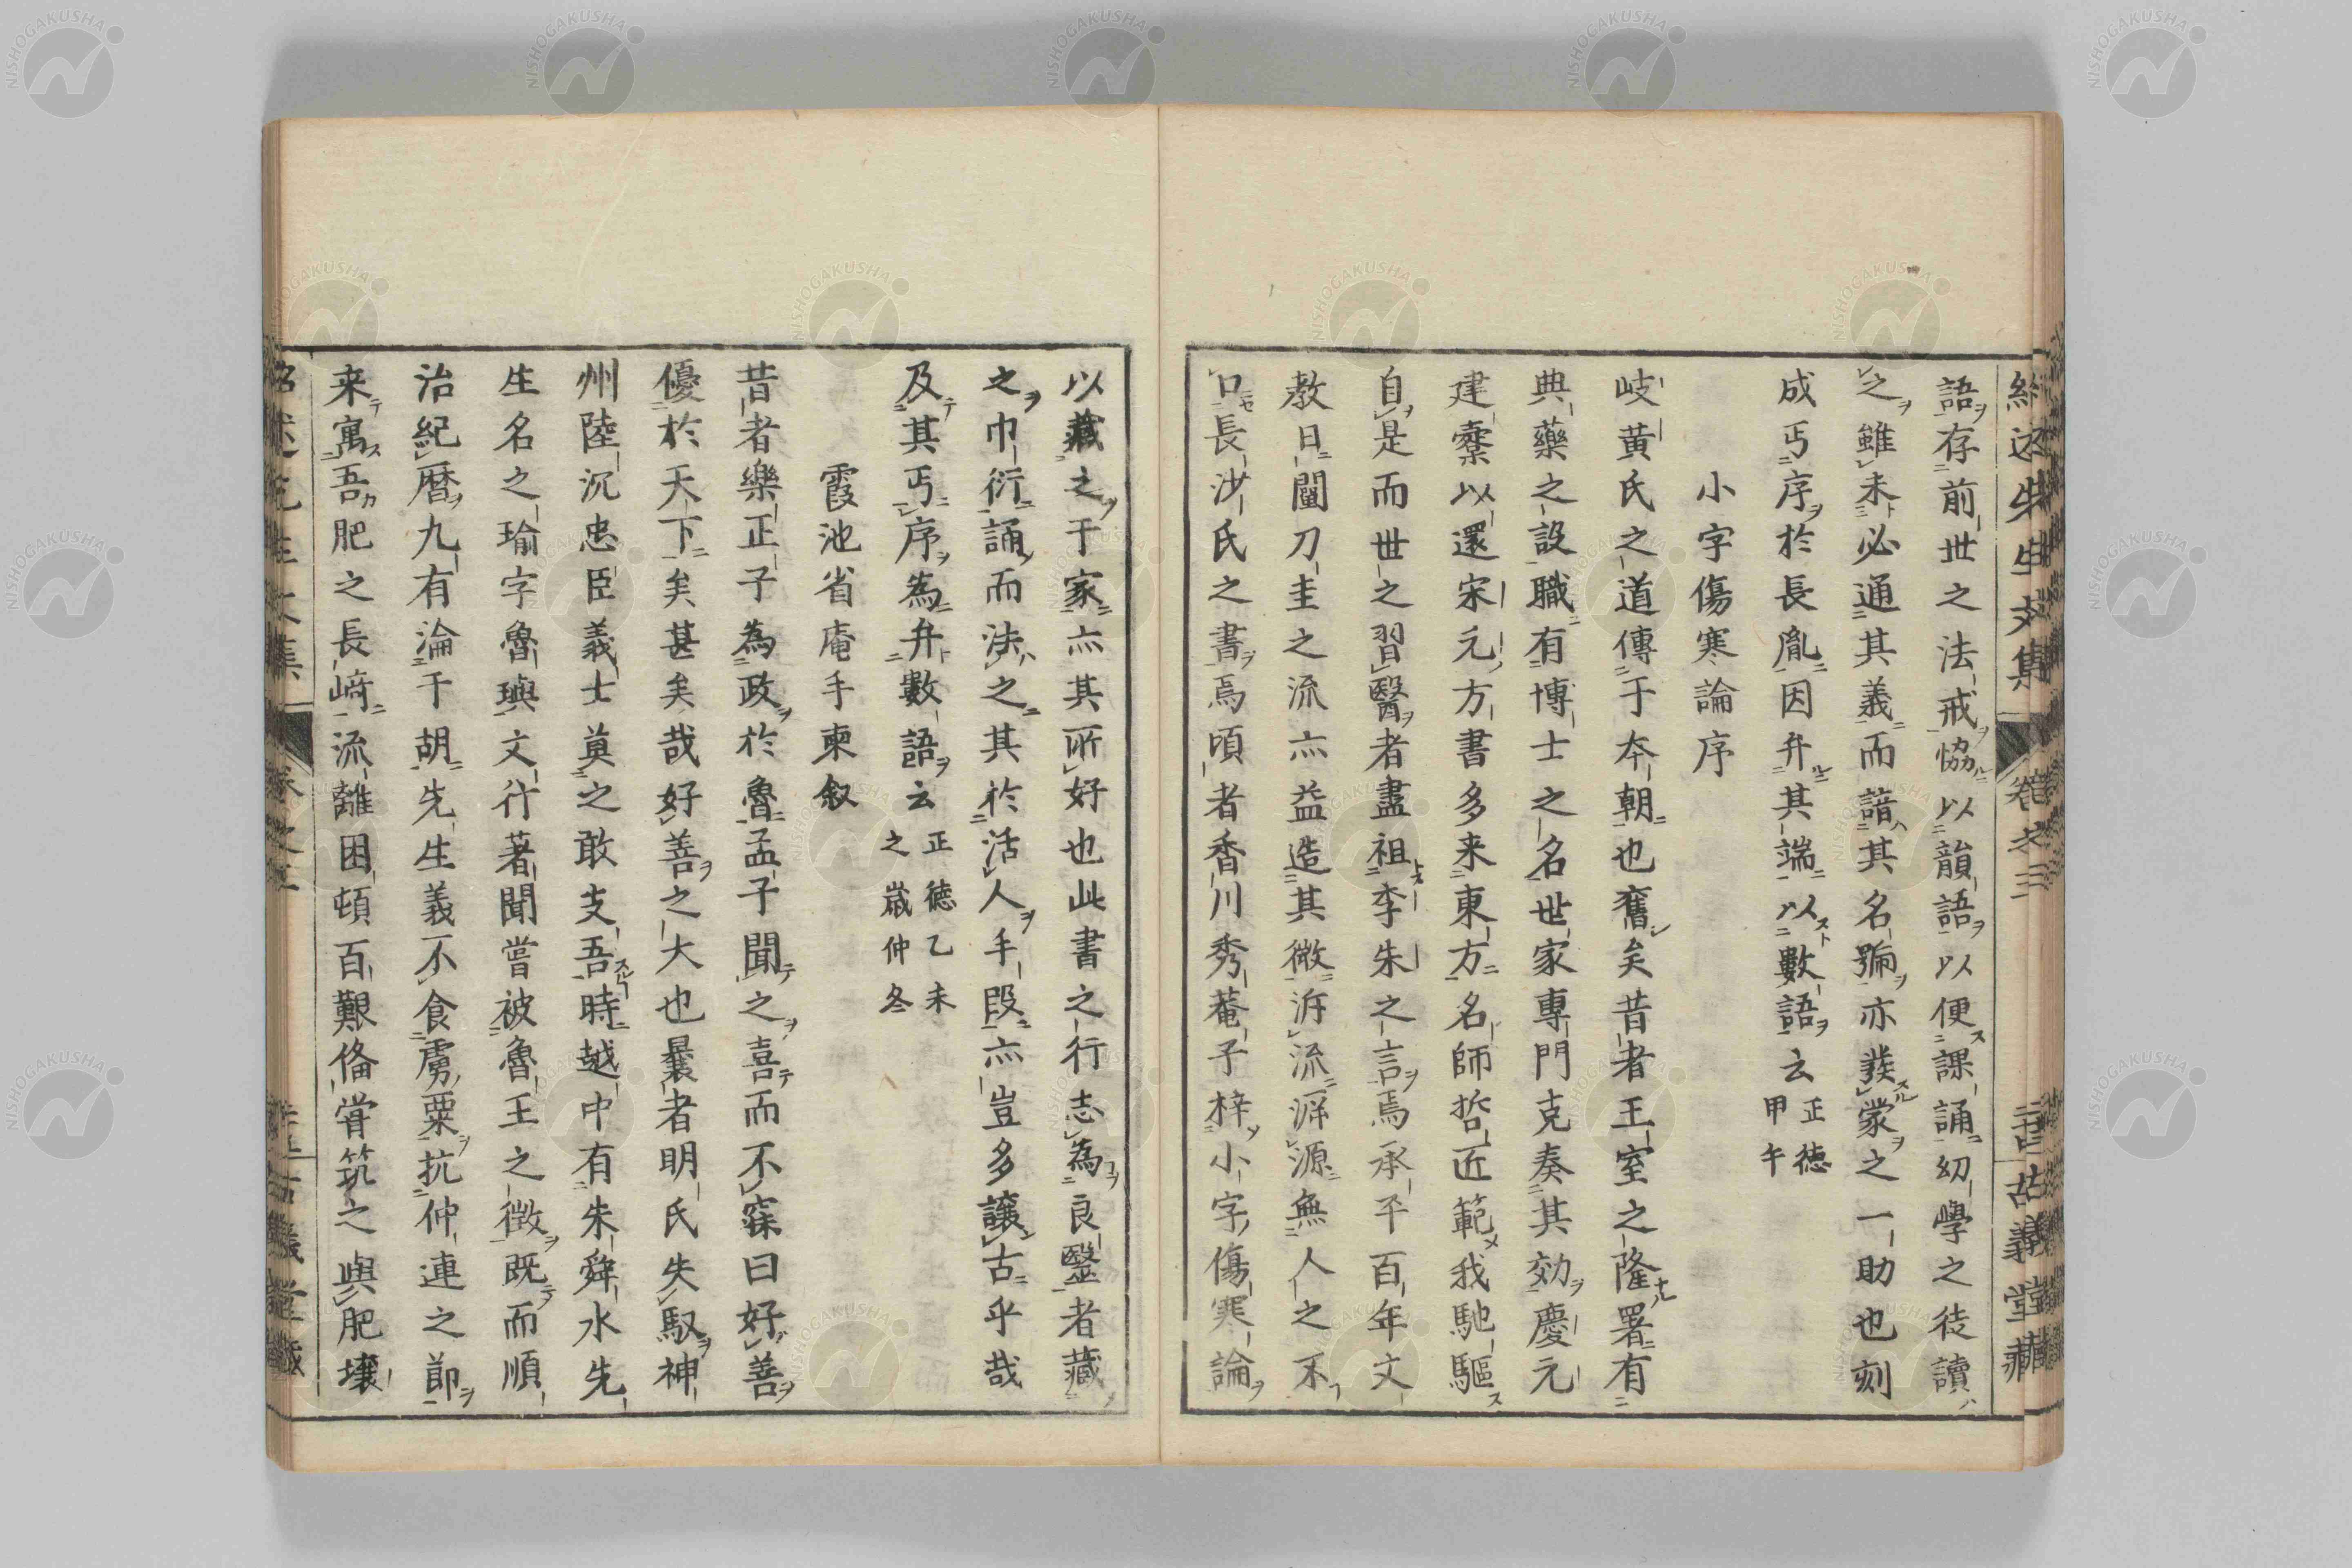 語存前世之法戒恊以韻語以便課誦幼學之徒讀
之雖未必通其義而諳其名號亦發蒙之一助也刻
成丐序於長胤因弁其端以數語云 正德甲午
小字傷寒論序
岐黃氏之道傳于本朝也舊矣昔者王室之隆署有
典藥之設職有博士之名世家專門克奏其効慶元
建櫜以還宋元方書多来東方名師哲匠範我馳驅
自是而世之習醫者盡祖李朱之言焉承平百年文
教日闡刀圭之流亦益造其微泝流溽源無人之不
口長沙氏之書焉頃者香川秀菴子梓小字傷寒論
以藏之于家亦其所好也此書之行志為良毉者藏
之巾衍誦而法之其於活人手段亦豈多讓古乎哉
及其丐序為弁數語云 正德乙未之歲仲冬
霞池省庵手柬叙
昔者樂正子為政於魯孟子聞之喜而不寐曰好善
優於天下矣甚矣哉好善之大也曩者明氏失馭神
州陸沉忠臣義士莫之敢支吾時越中有朱舜水先
生名之瑜字魯璵文行著聞嘗被魯王之徴既而順
治紀曆九有淪于胡先生義不食虜粟抗仲連之節
来寓吾肥之長﨑流離困頓百艱俻甞筑之與肥壤
紹述先生文集 卷之三 古義堂藏